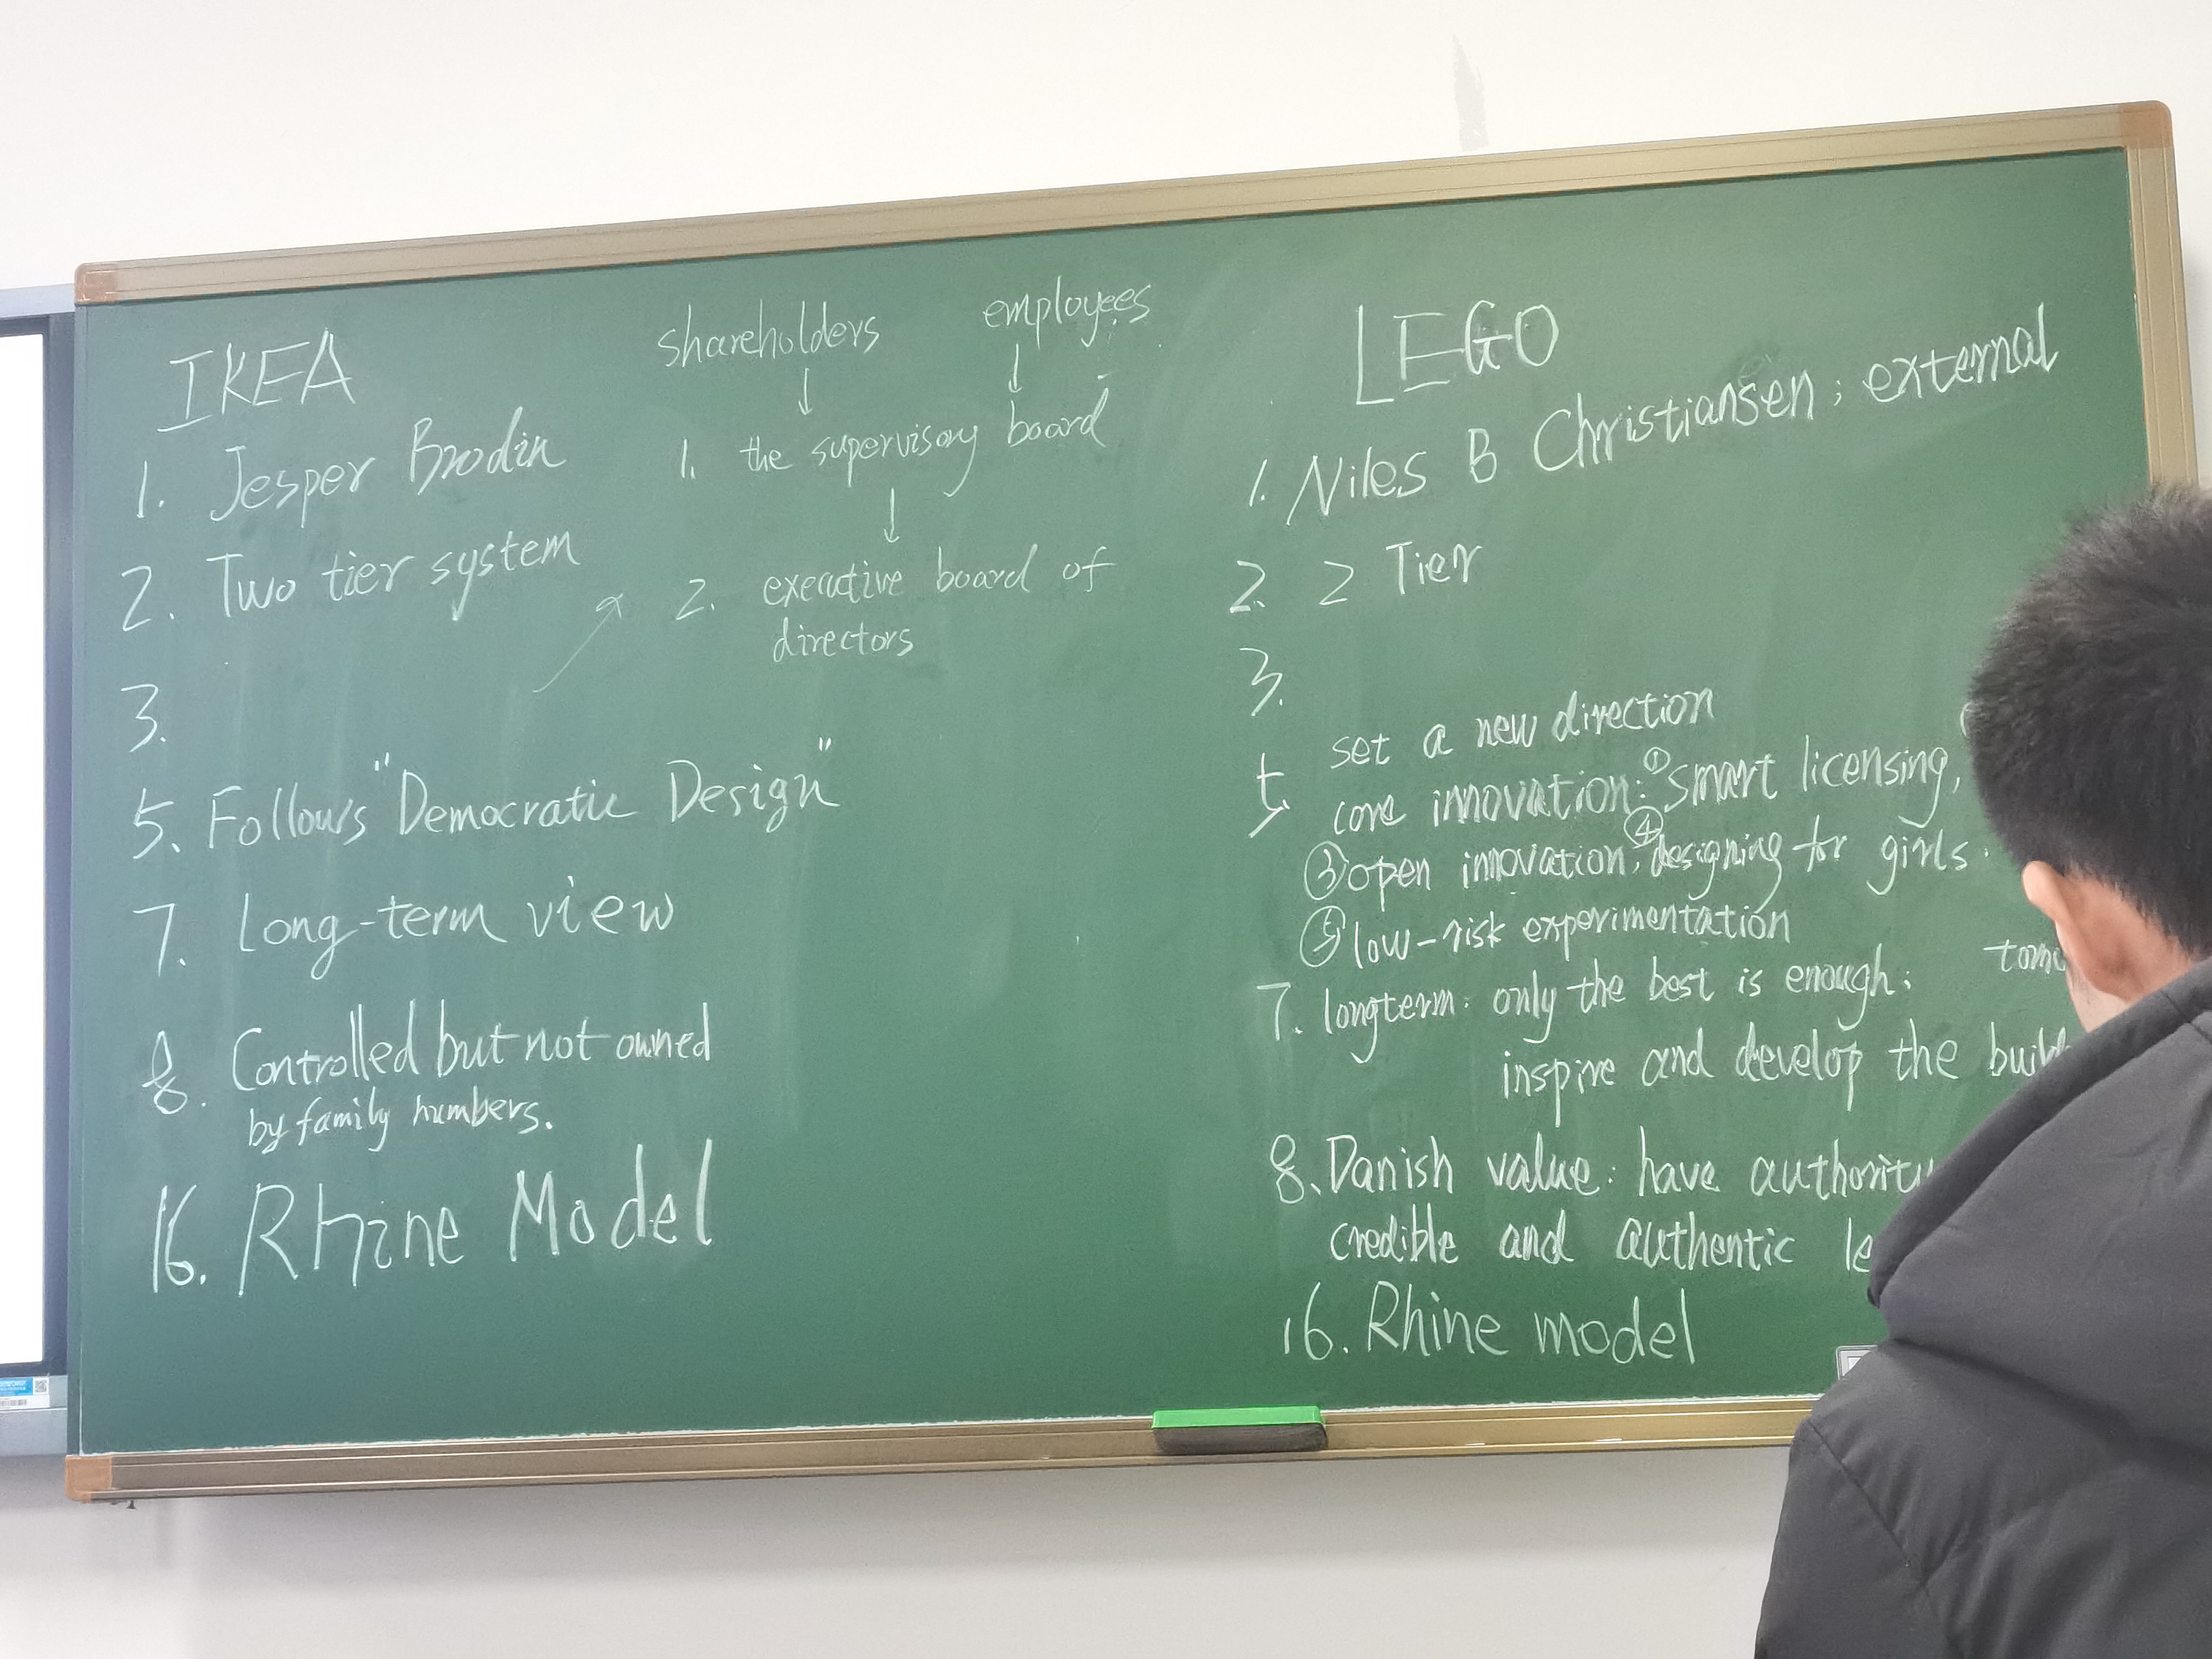 IKEA
1. Jesper Brodin
2. Two tier system
3.
5. Follows "Democratic Design"
7. Long-term view
8. Controlled but not owned
by family numbers.
16. Rhine Model
shareholders employees
↓ ↓
1. the supervisory board
↓
2. executive board of
directors
LEGO
1. Niles B Christiansen; external
2. 2 Tier
3.
set a new direction
5 core innovation: ① smart licensing,
③ open innovation, ④ designing for girls.
⑤ low-risk experimentation
7. longterm: only the best is enough;
inspire and develop the
8. Danish value: have authority
credible and authentic
16. Rhine model